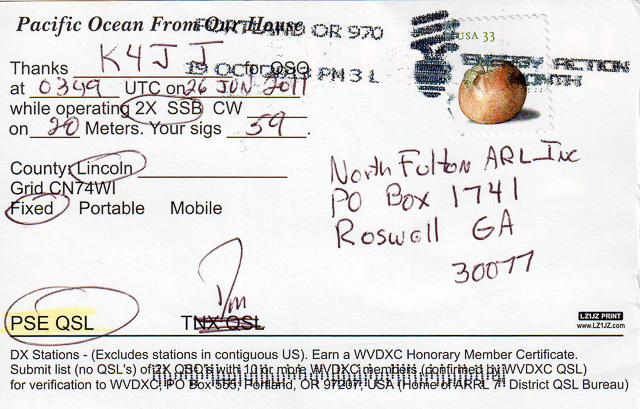 Pacific Ocean From Our House
PORTLAND OR 970
USA 33
Thanks K4JJ for QSO
19 OCT PM 3 L
ENERGY ACTION
MONTH
at 0349 UTC on 26 JUN 2011
while operating 2X SSB CW
on 20 Meters. Your sigs 59.
North Fulton ARL Inc
PO Box 1741
Roswell GA
30077
County: Lincoln
Grid CN74WI
Fixed Portable Mobile
PSE QSL TNX QSL
LZ1JZ PRINT
www.LZ1JZ.com
DX Stations - (Excludes stations in contiguous US). Earn a WVDXC Honorary Member Certificate.
Submit list (no QSL's) of 2X QSO's with 10 or more WVDXC members (confirmed by WVDXC QSL)
for verification to WVDXC, PO Box 555, Portland, OR 97207, USA (Home of ARRL 7th District QSL Bureau)